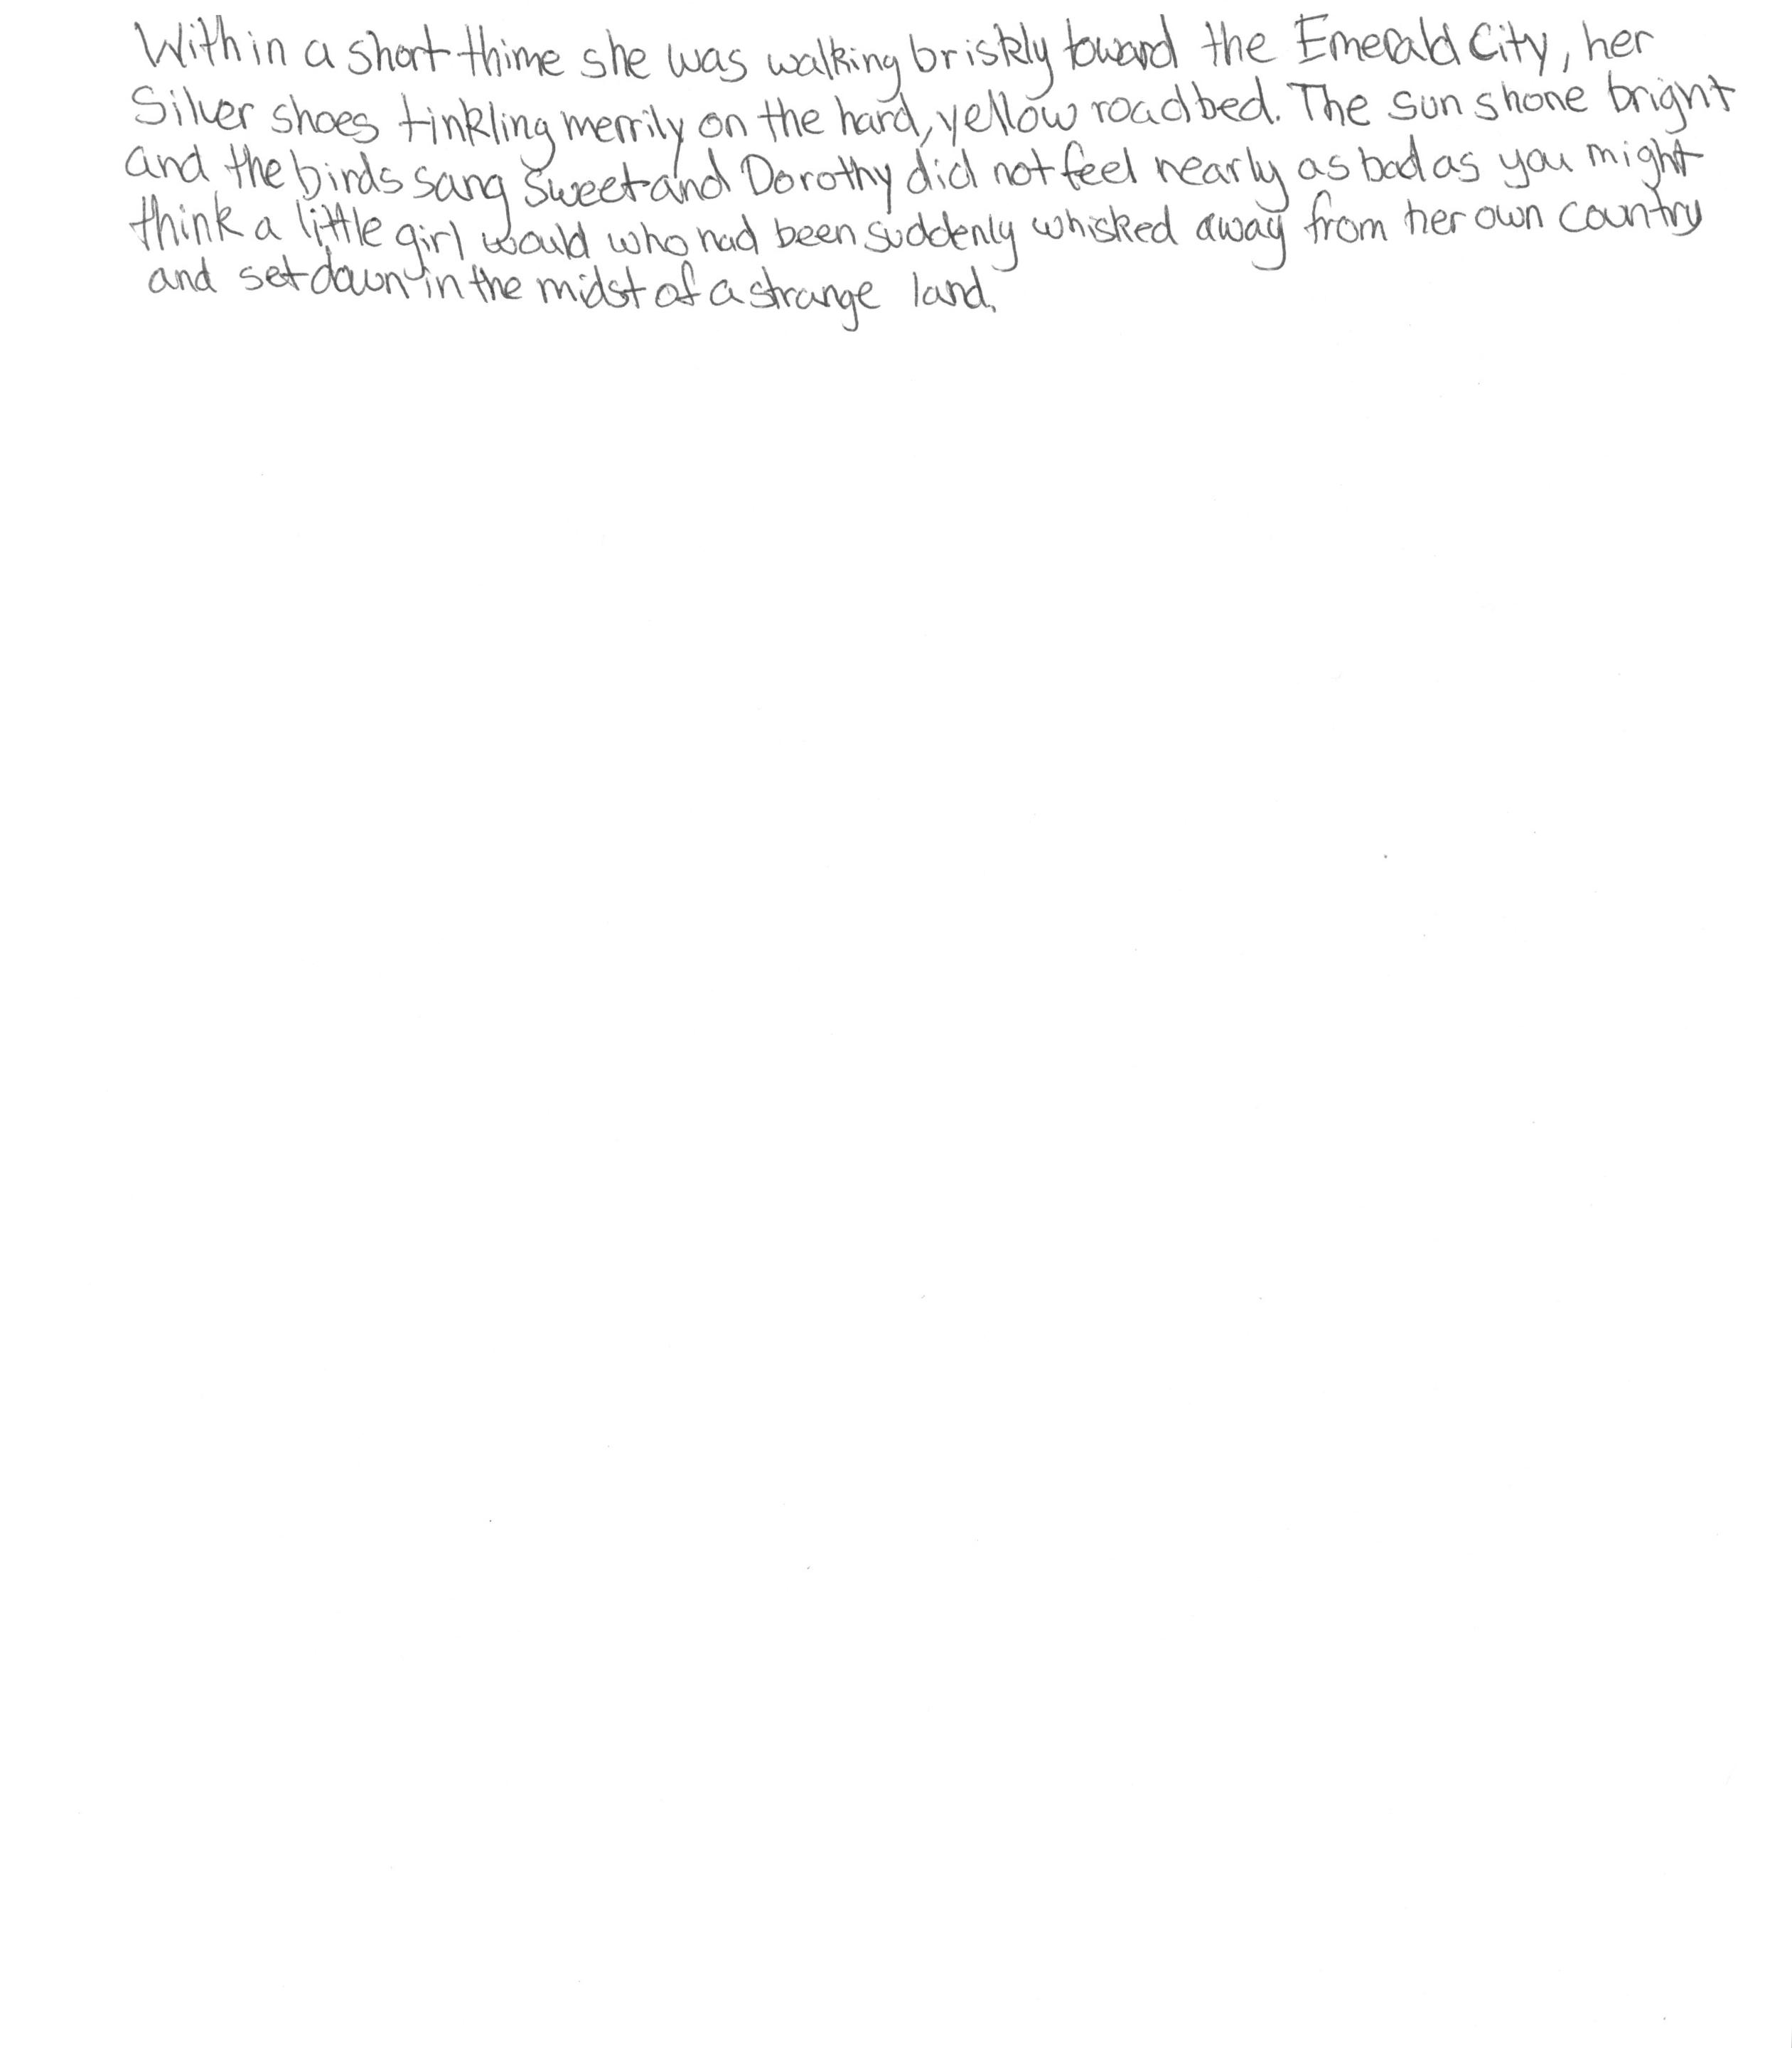 Within a short thime she was walking briskly toward the Emerald City, her
Silver shoes tinkling merrily on the hard, yellow roadbed. The sun shone bright
and the birds sang sweet and Dorothy did not feel nearly as bad as you might
think a little girl would who had been suddenly whisked away from her own country
and set down in the midst of a strange land.